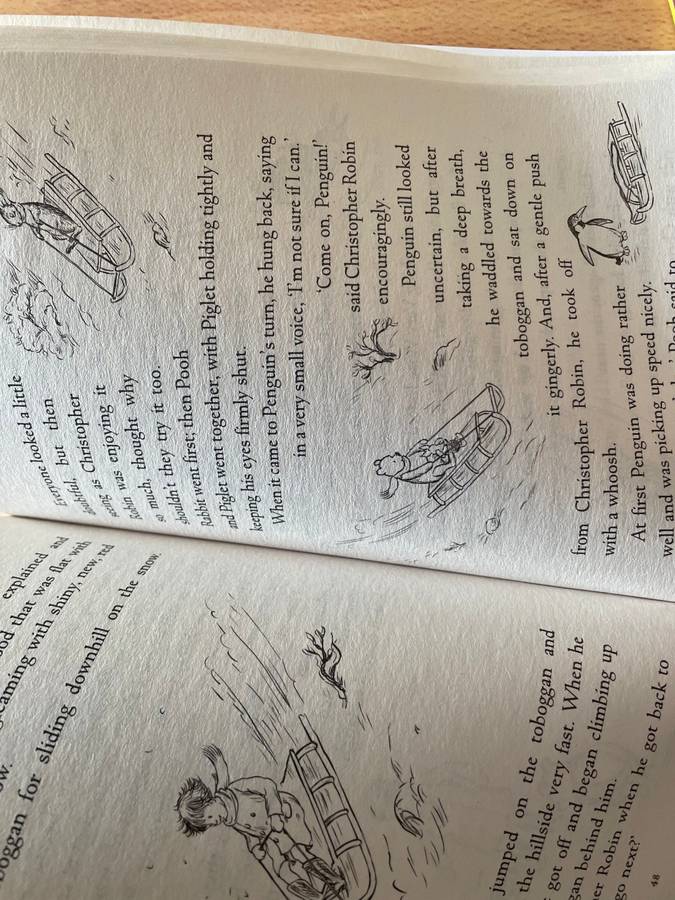 explained and
that was flat with
with shiny, new, red
for sliding downhill on the snow.
jumped on the toboggan and
the hillside very fast. When he
got off and began climbing up
behind him.
Robin when he got back to
go next?'
48
Everyone looked a little
but then
Christopher
seeing as
Robin was enjoying it
so much, thought why
shouldn't they try it too.
Rabbit went first; then Pooh
and Piglet went together, with Piglet holding tightly and
keeping his eyes firmly shut.
When it came to Penguin's turn, he hung back, saying
in a very small voice, 'I'm not sure if I can.'
'Come on, Penguin!'
said Christopher Robin
encouragingly.
Penguin still looked
uncertain, but after
taking a deep breath,
he waddled towards the
toboggan and sat down on
it gingerly. And, after a gentle push
from Christopher Robin, he took off
with a whoosh.
At first Penguin was doing rather
well and was picking up speed nicely.
Pooh said to